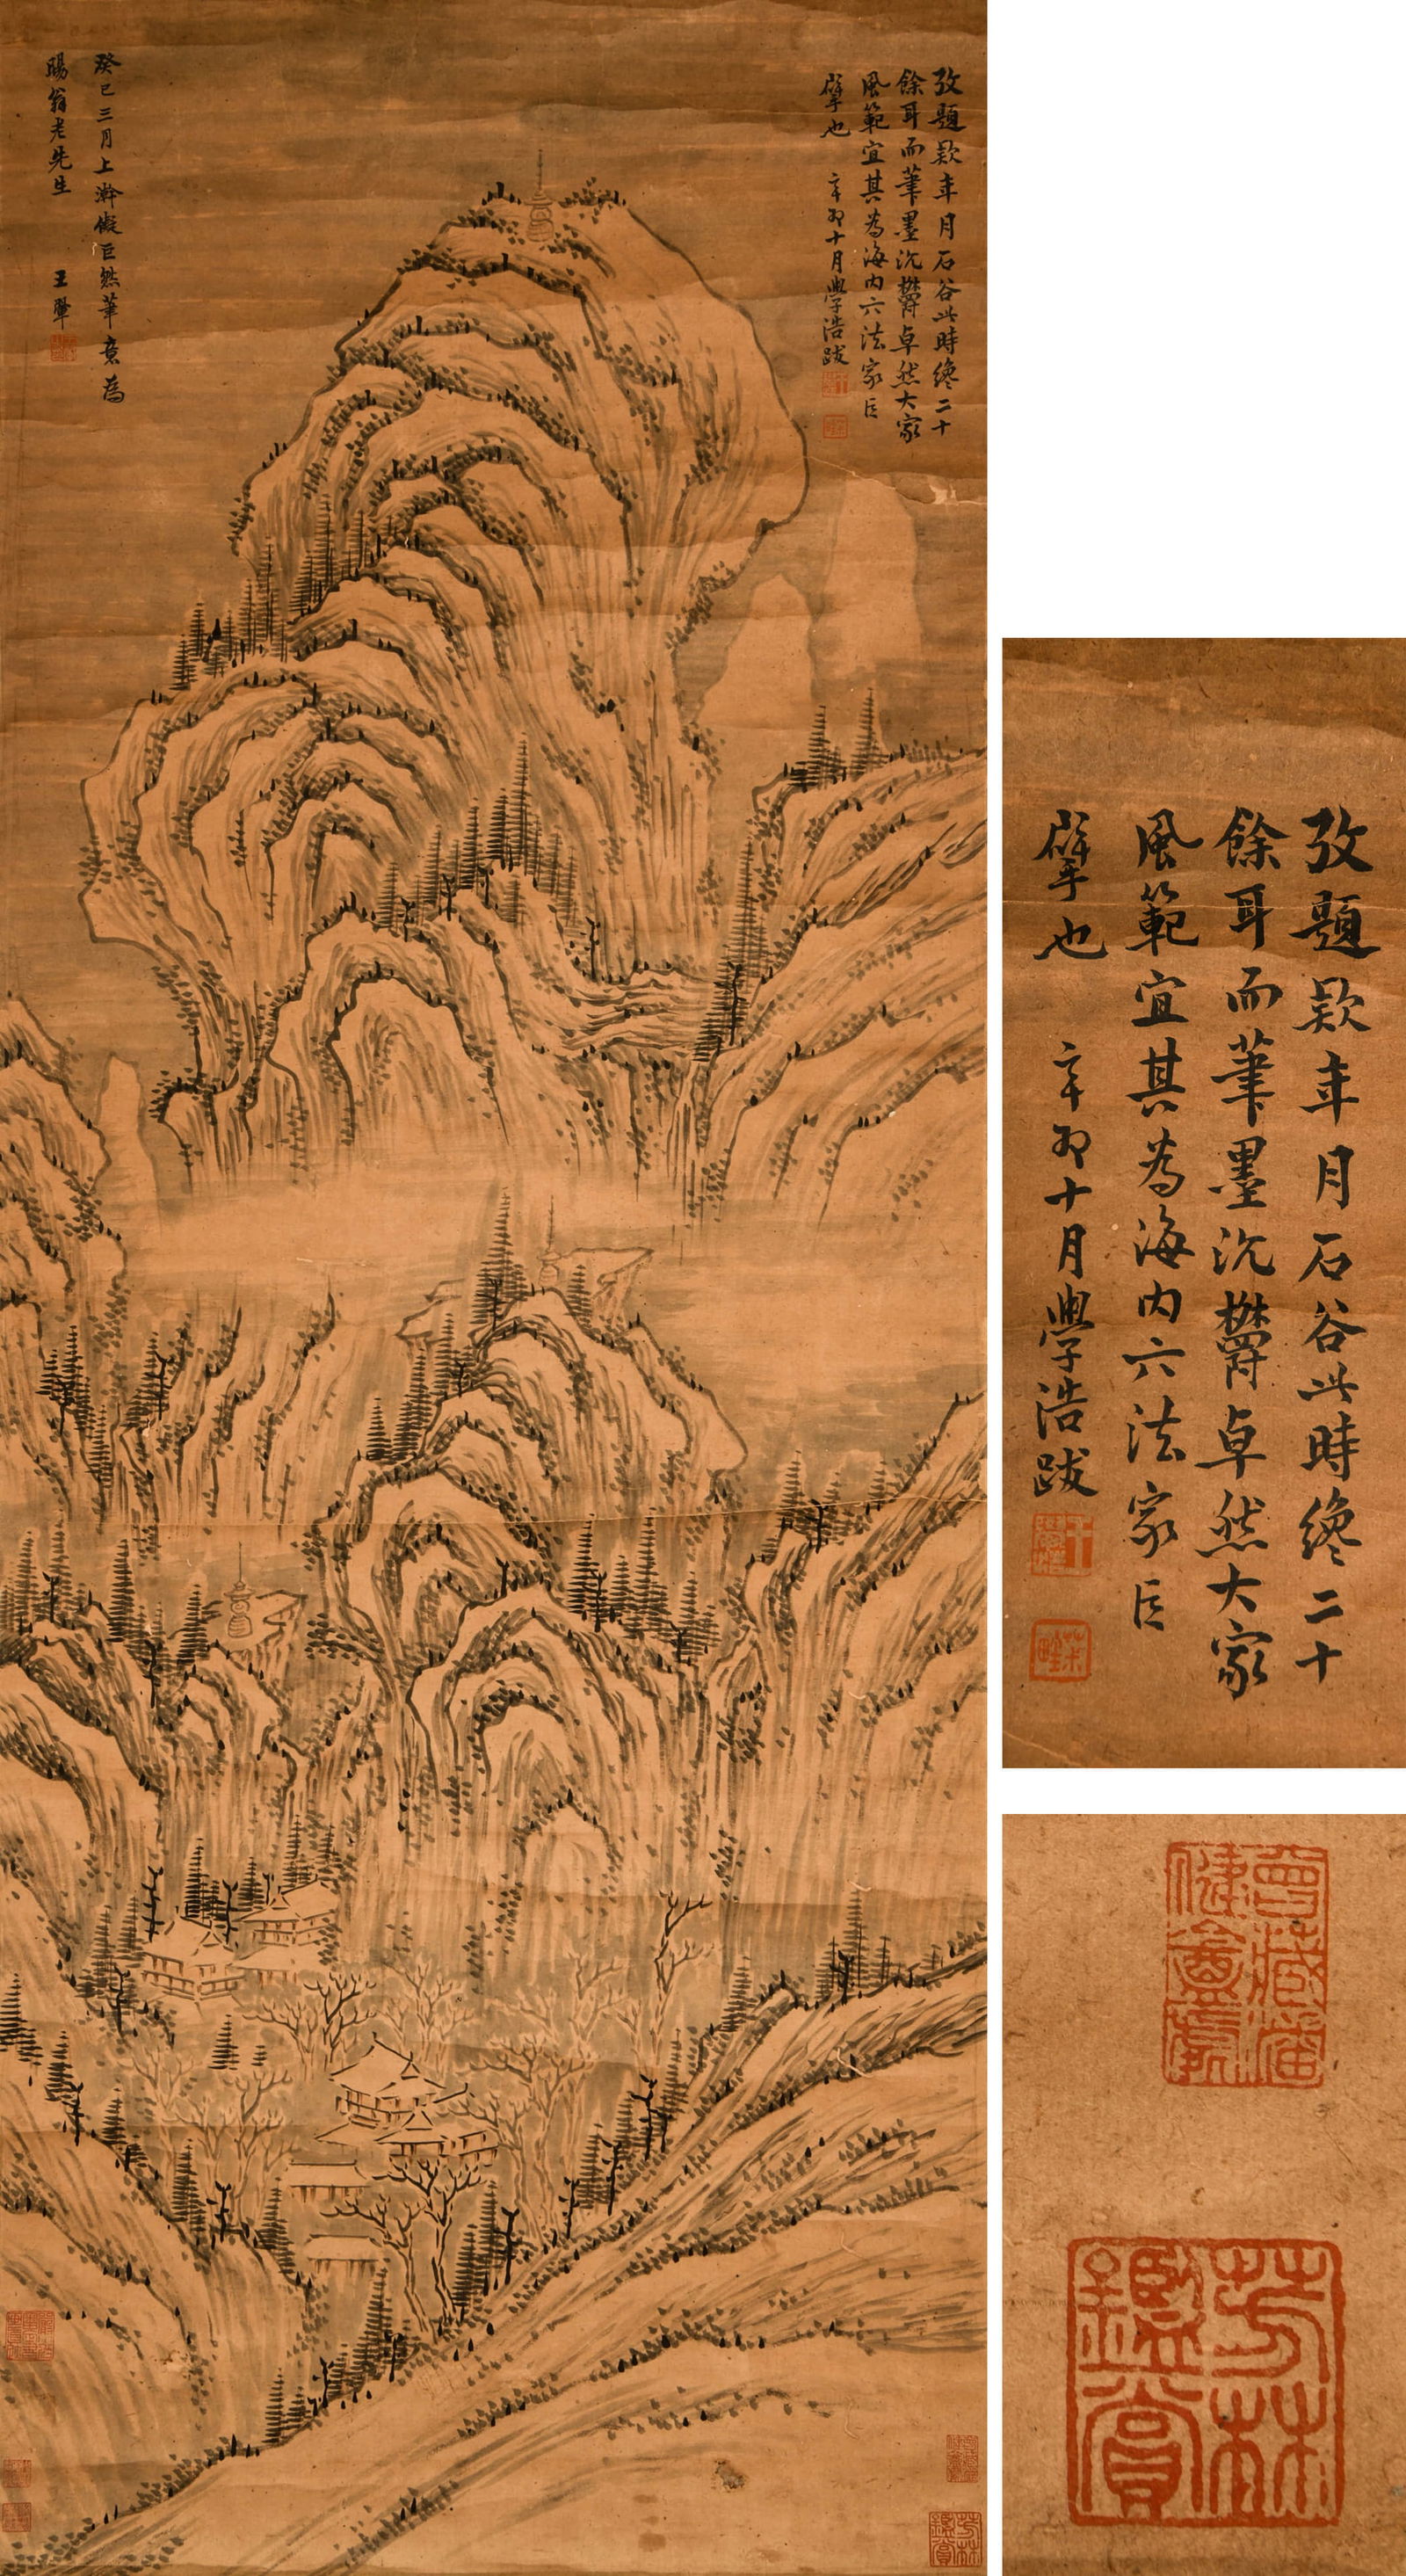 攷題款年月石谷此時纔二十
餘耳而筆墨沉欝卓然大家
風範宜其為海内六法家巨
擘也 辛卯十月學浩跋
癸巳三月上澣儗巨然筆意為
暘翁老先生 王翬
攷題款年月石谷此時纔二十
餘耳而筆墨沉欝卓然大家
風範宜其為海内六法家巨
擘也 辛卯十月學浩跋
芳林
鑑賞
芳林
鑑賞